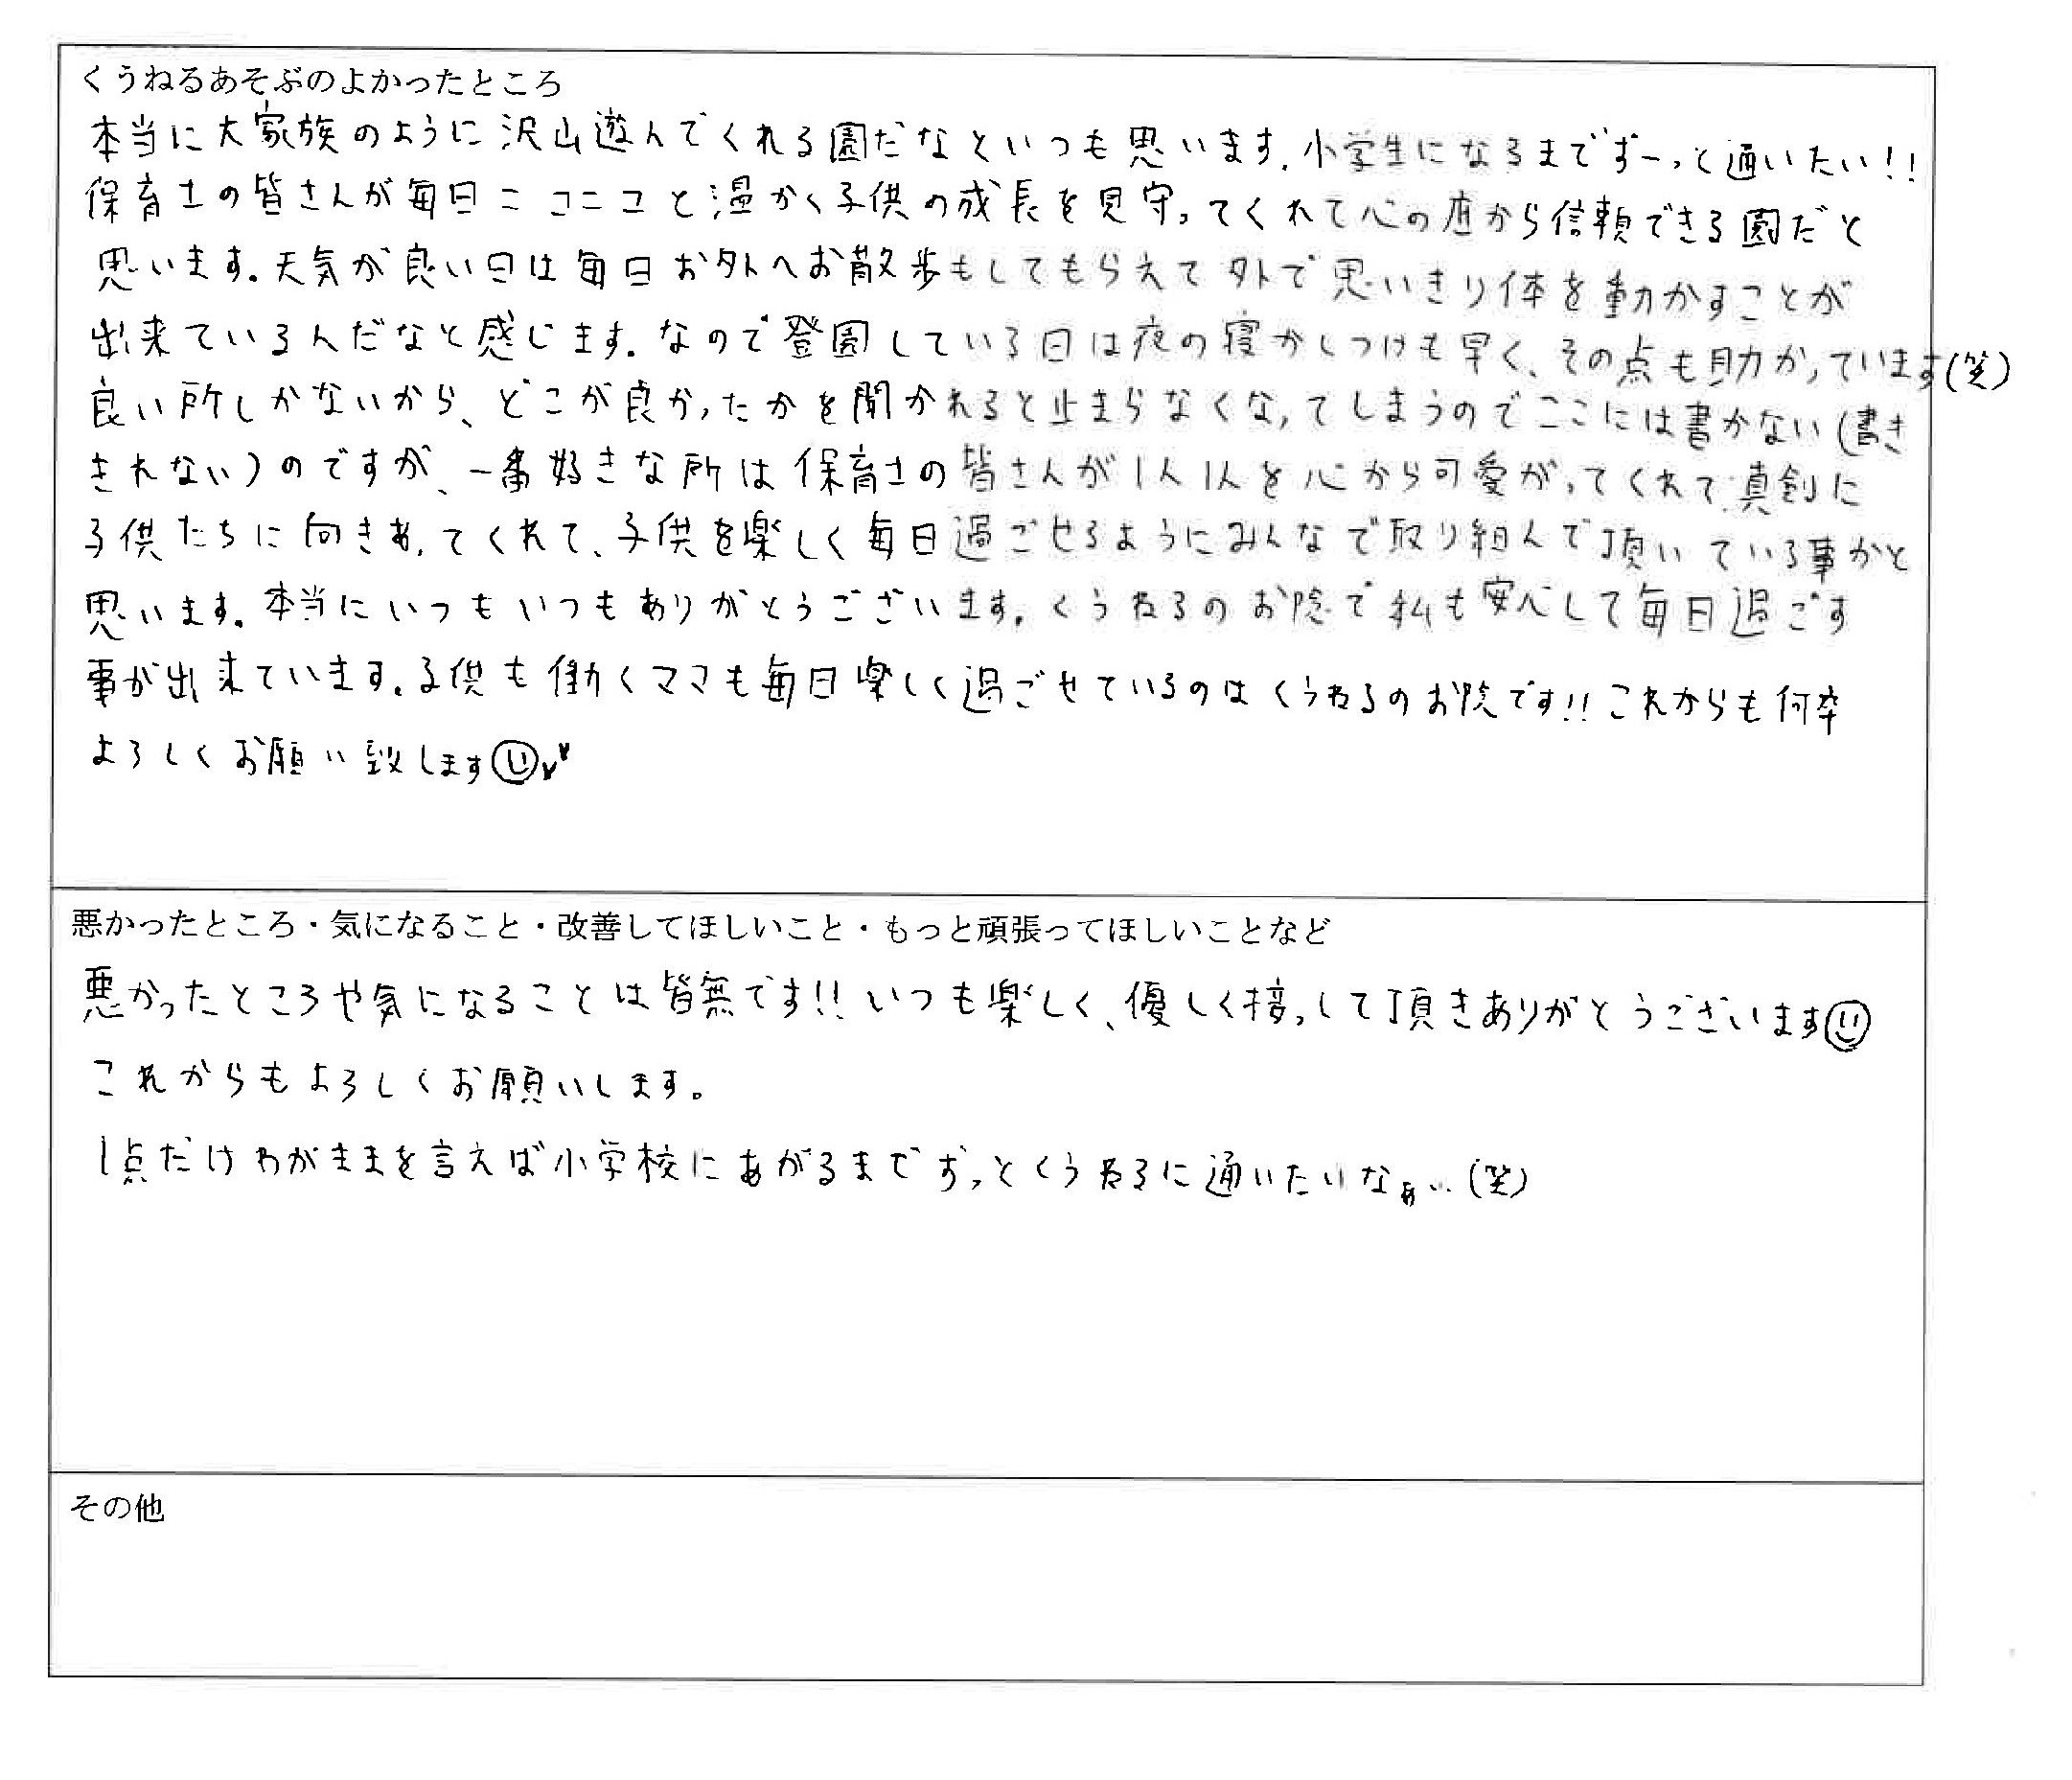 くうねるあそぶのよかったところ
本当に大家族のように沢山遊んでくれる園だなといつも思います。小学生になるまでずーっと通いたい!!
保育士の皆さんが毎日ニコニコと温かく子供の成長を見守ってくれて心の底から信頼できる園だと
思います。天気が良い日は毎日お外へお散歩もしてもらえて外で思いきり体を動かすことが
出来ているんだなと感じます。なので登園している日は夜の寝かしつけも早く、その点も助かっています(笑)
良い所しかないから、どこが良かったかを聞かれると止まらなくなってしまうのでここには書かない(書き
きれない)のですが、一番好きな所は保育士の皆さんが1人1人を心から可愛がってくれて真剣に
子供たちに向きあってくれて、子供を楽しく毎日過ごせるようにみんなで取り組んで頂いている事かと
思います。本当にいつもいつもありがとうございます。くうねるのお陰で私も安心して毎日過ごす
事が出来ています。子供も働くママも毎日楽しく過ごせているのはくうねるのお陰です!!これからも何卒
よろしくお願い致します
悪かったところ・気になること・改善してほしいこと・もっと頑張ってほしいことなど
悪かったところや気になることは皆無です!!いつも楽しく、優しく接っして頂きありがとうございます
これからもよろしくお願いします。
1点だけわがままを言えば小学校にあがるまでずっとくうねるに通いたいなぁ…(笑)
その他